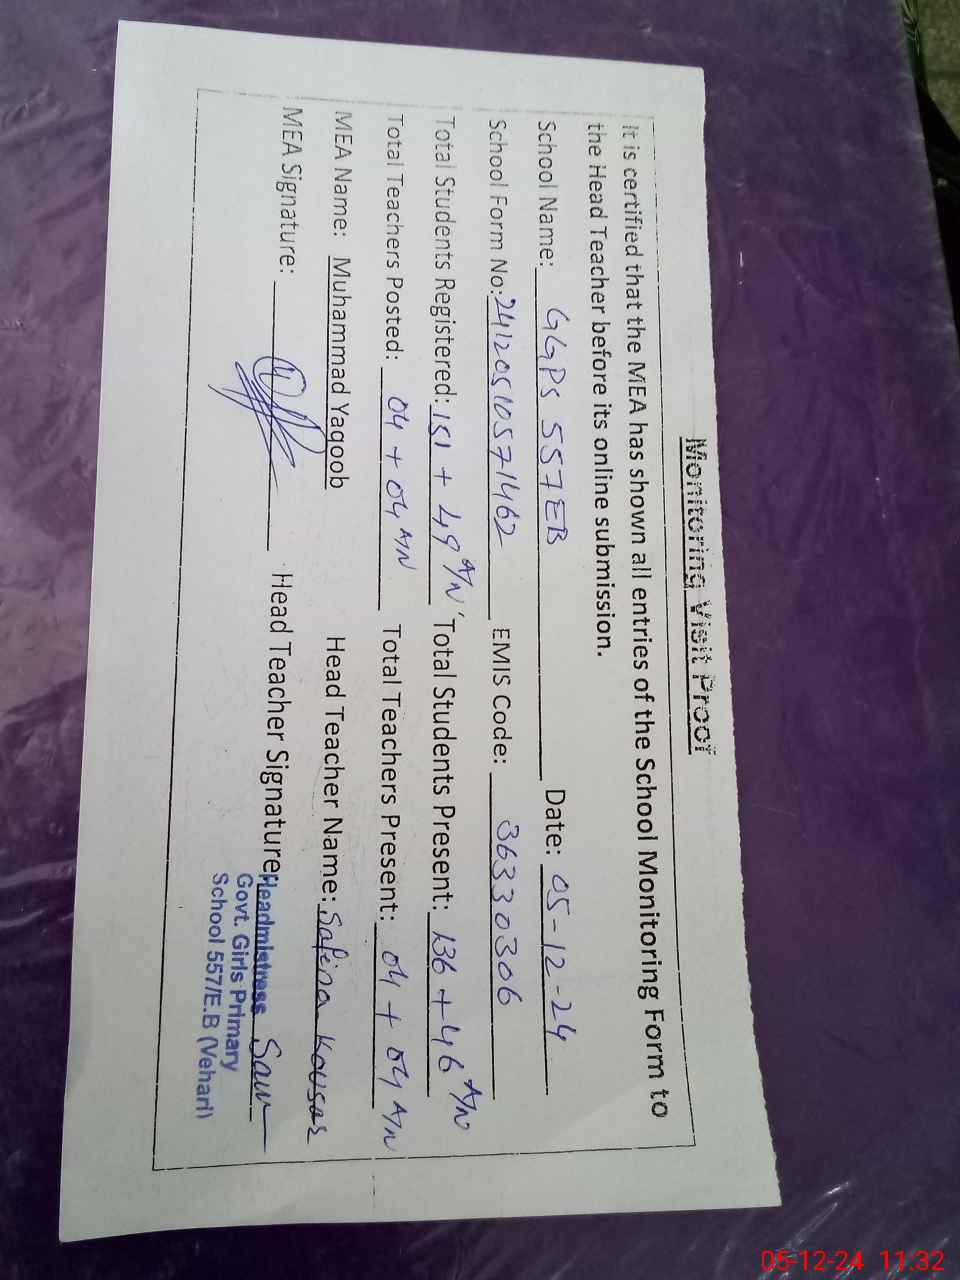 Monitoring Visit Proof
It is certified that the MEA has shown all entries of the School Monitoring Form to
the Head Teacher before its online submission.
School Name: GGPS 557EB Date: 05-12-24
School Form No: 241205105571462 EMIS Code: 36330306
Total Students Registered: 151 + 49 A/N Total Students Present: 136 + 46 A/N
Total Teachers Posted: 04 + 04 A/N Total Teachers Present: 04 + 04 A/N
MEA Name: Muhammad Yaqoob Head Teacher Name: Safina Kousar
MEA Signature: Head Teacher Signature:
Headmistress
Govt. Girls Primary
School 557/E.B (Vehari)
05-12-24 11:32